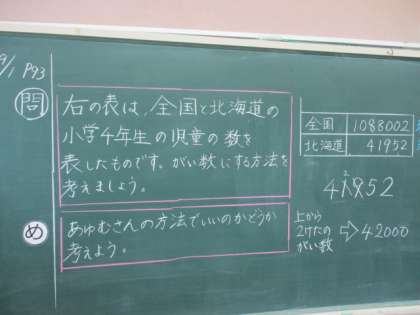 9/1 P93
問
右の表は、全国と北海道の
小学4年生の児童の数を
表したものです。がい数にする方法を
考えましょう。
全国 1088002
北海道 41952
41952
上から
2けたの
がい数
⇨42000
め
あゆむさんの方法でいいのかどうか
考えよう。